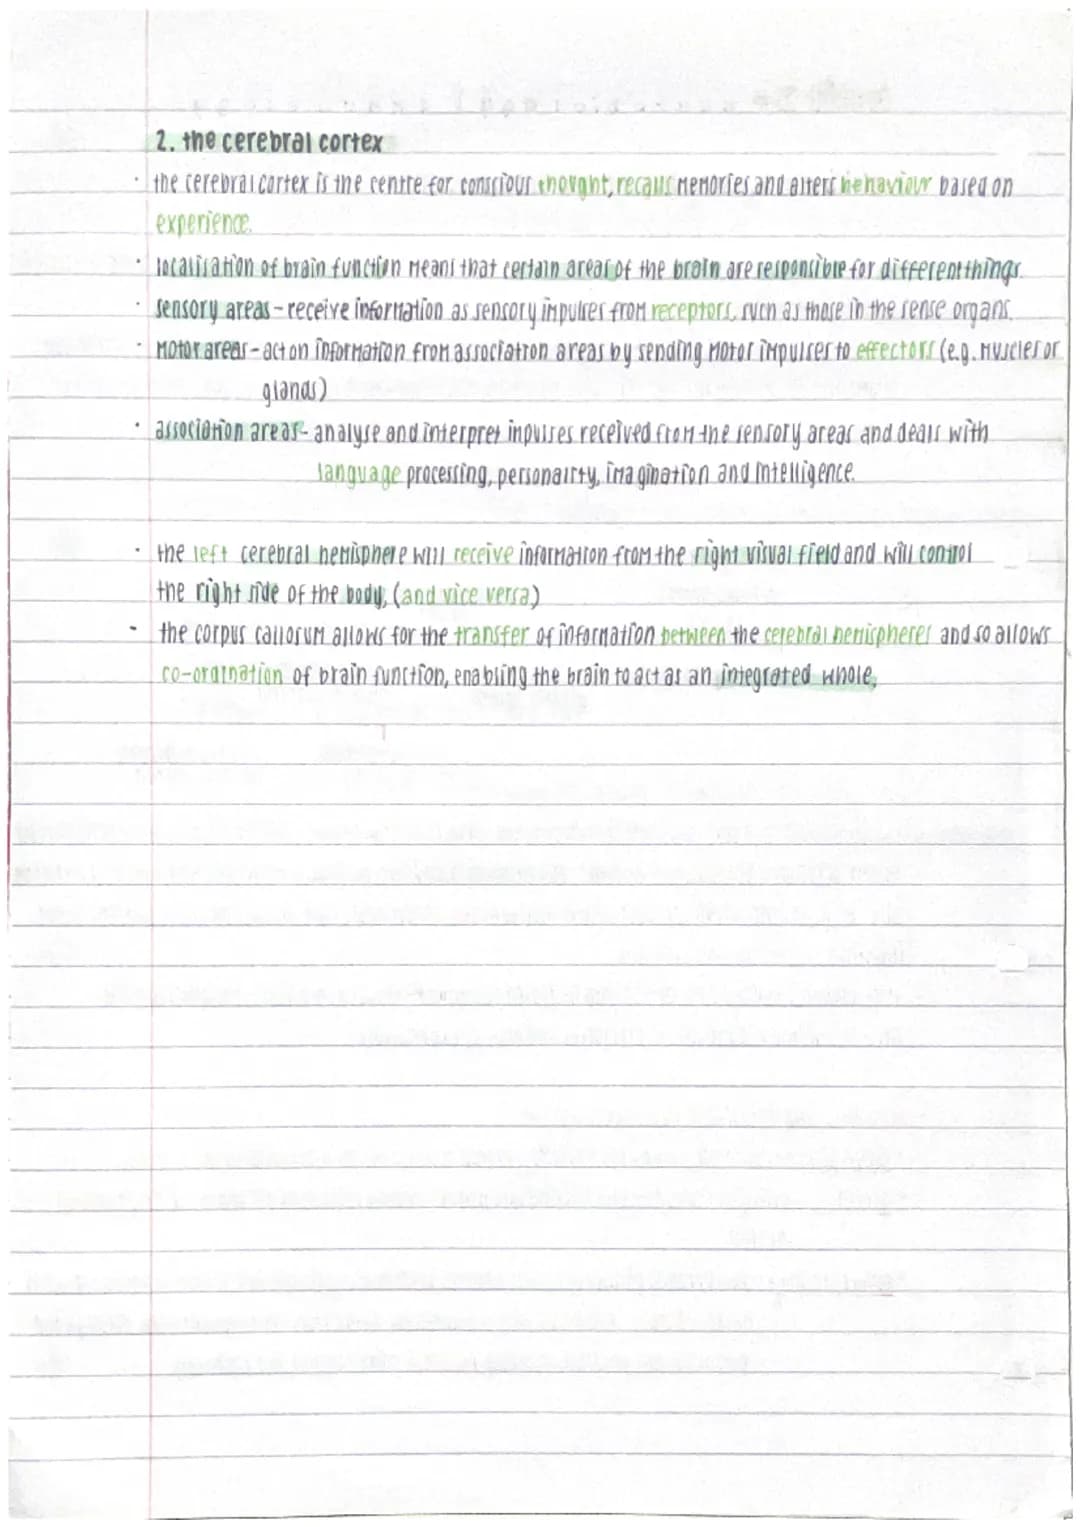 2. the cerebral cortex
· the cerebral cortex is the centre for conscious thought, recalls memories and alters behaviour based on
experience.
· localisation of brain function means that certain areas of the brain are responsible for different things.
· sensory areas - receive information as sensory impulses from receptors, such as those in the sense organs.
· motor areas - act on information from association areas by sending motor impulses to effectors (e.g. muscles or
glands)
· association areas - analyse and interpret inpulses received from the sensory areas and deals with
language processing, personality, imagination and intelligence.
· the left cerebral hemisphere will receive information from the right visual field and will control
the right side of the body, (and vice versa)
- the corpus callosum allows for the transfer of information between the cerebral hemispheres and so allows
co-ordination of brain function, enabling the brain to act as an integrated whole,